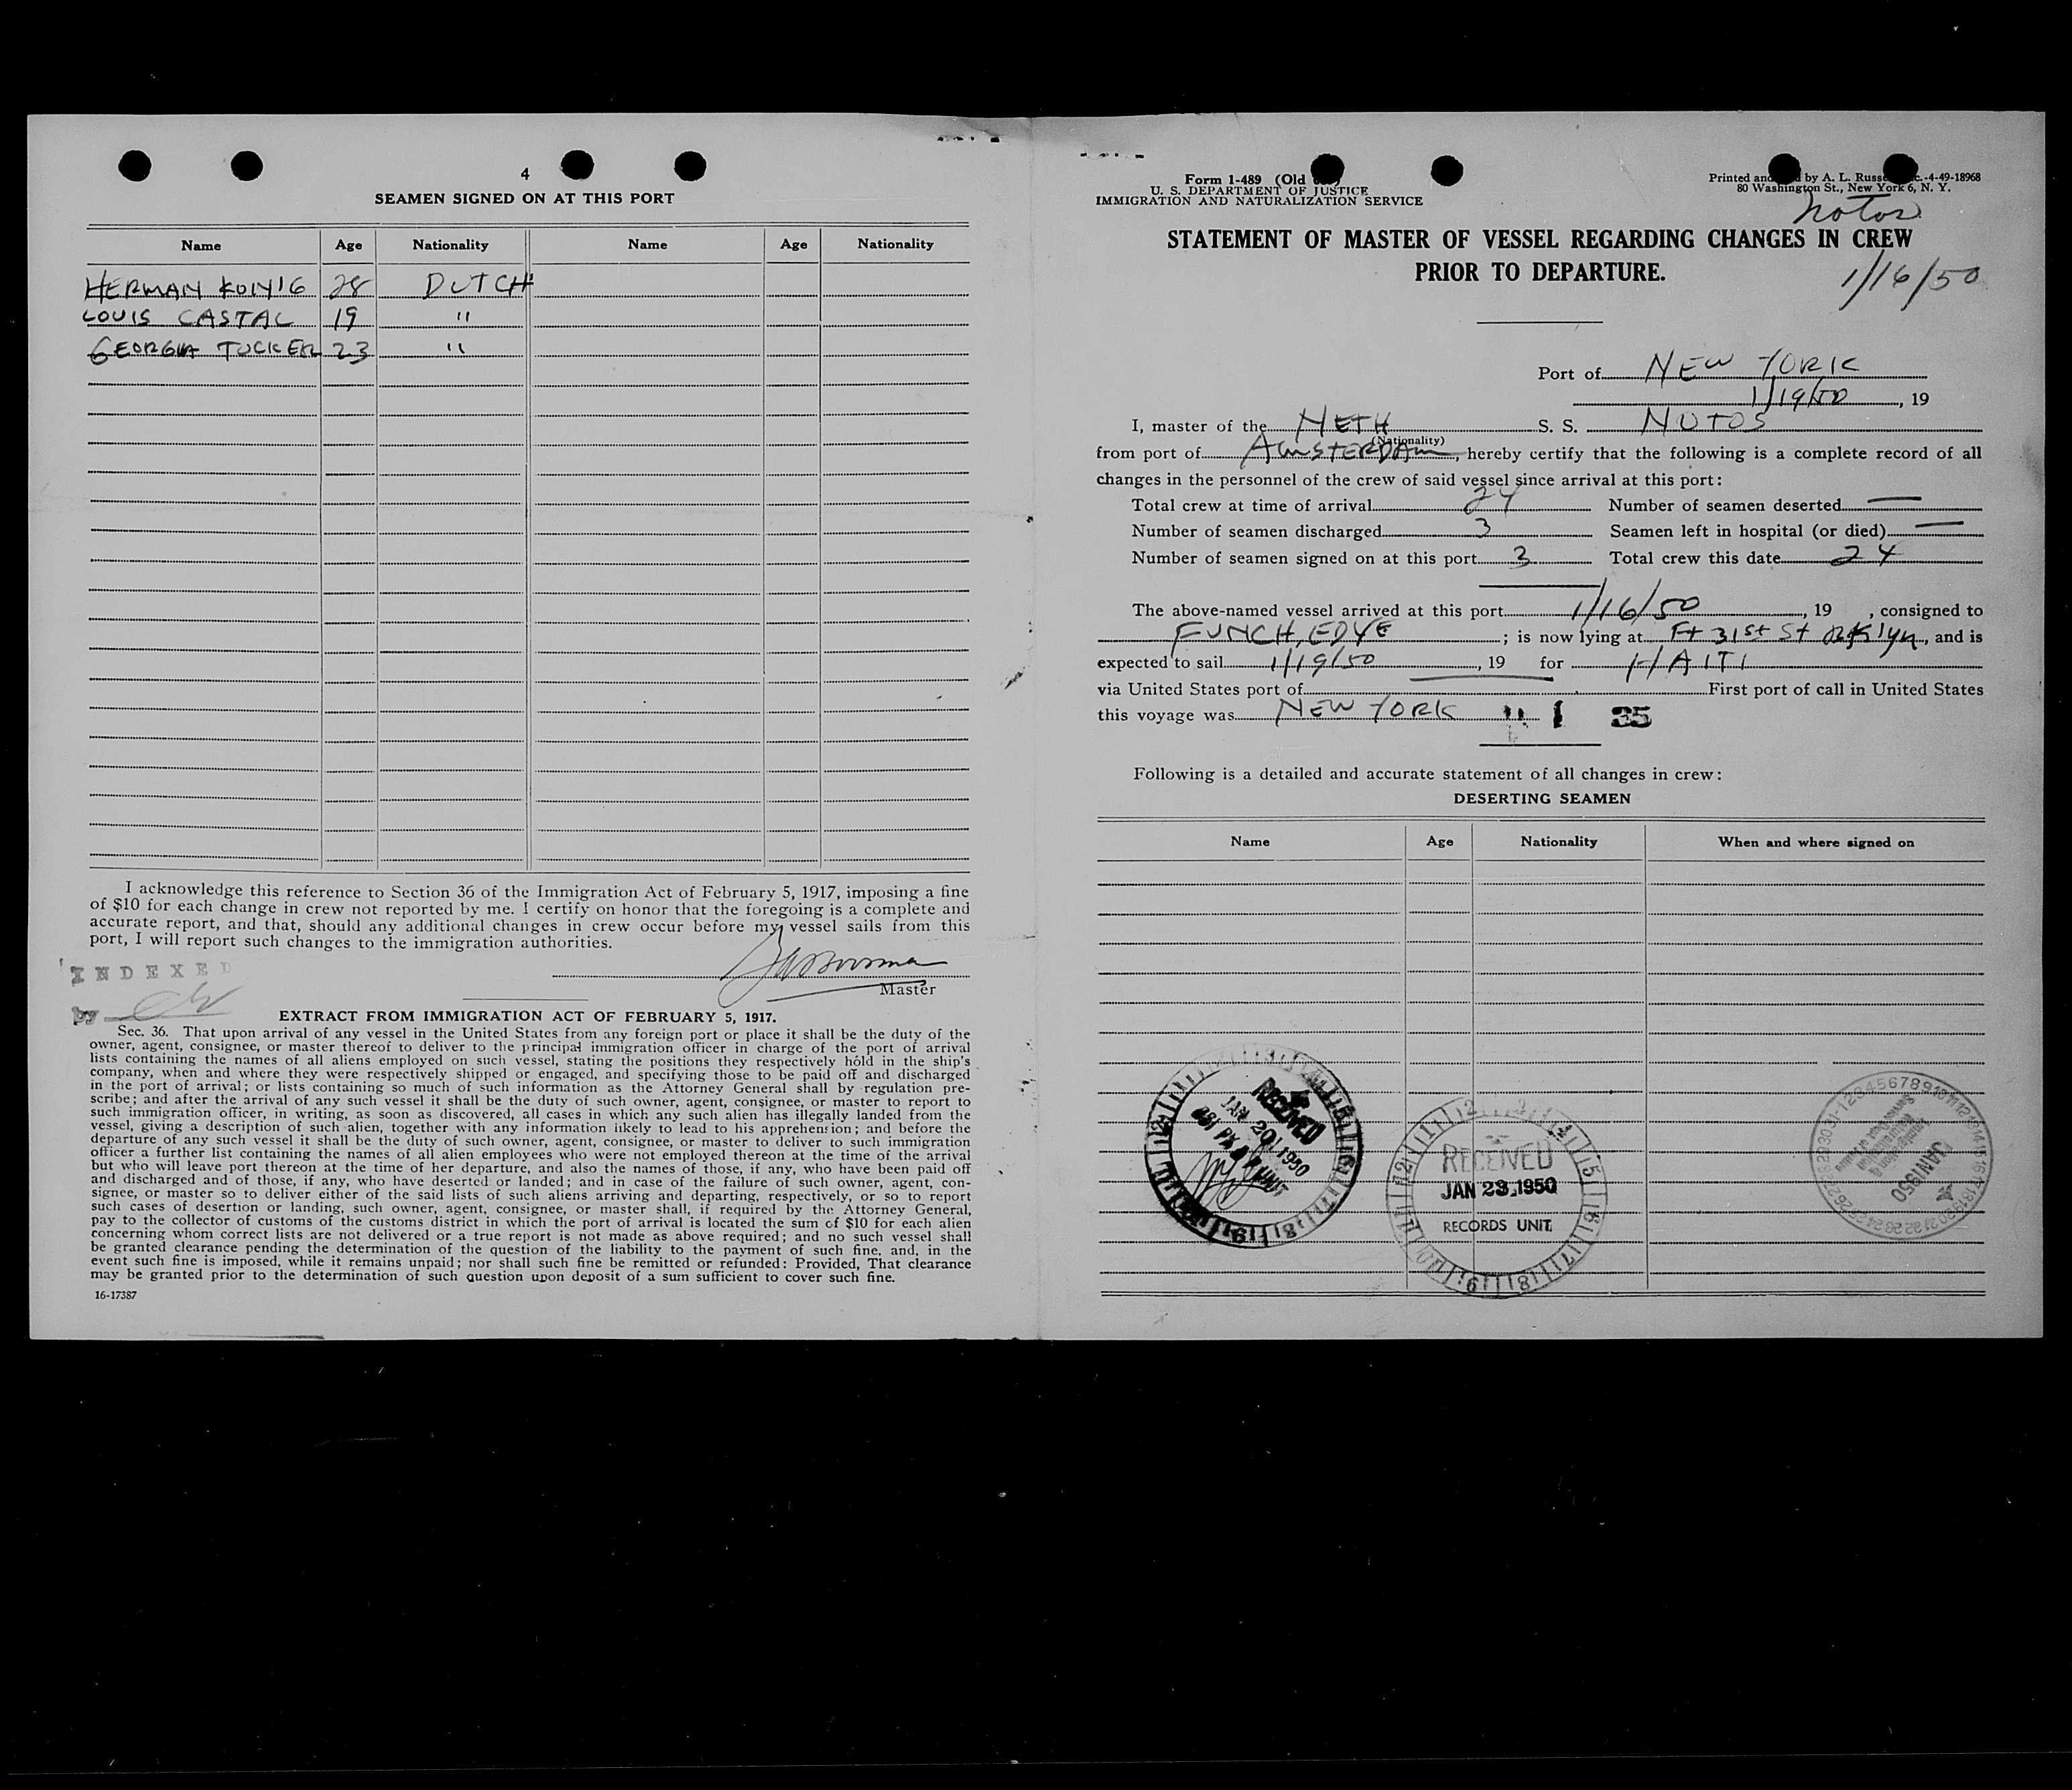 4
SEAMEN SIGNED ON AT THIS PORT
Name Age Nationality Name Age Nationality
HERMAN KONIG 28 DUTCH
LOUIS CASTAL 19 "
GEORGIA TUCKER 23 "
I acknowledge this reference to Section 36 of the Immigration Act of February 5, 1917, imposing a fine
of $10 for each change in crew not reported by me. I certify on honor that the foregoing is a complete and
accurate report, and that, should any additional changes in crew occur before my vessel sails from this
port, I will report such changes to the immigration authorities.
INDEXED
Master
by
EXTRACT FROM IMMIGRATION ACT OF FEBRUARY 5, 1917.
Sec. 36. That upon arrival of any vessel in the United States from any foreign port or place it shall be the duty of the
owner, agent, consignee, or master thereof to deliver to the principal immigration officer in charge of the port of arrival
lists containing the names of all aliens employed on such vessel, stating the positions they respectively hold in the ship's
company, when and where they were respectively shipped or engaged, and specifying those to be paid off and discharged
in the port of arrival; or lists containing so much of such information as the Attorney General shall by regulation pre-
scribe; and after the arrival of any such vessel it shall be the duty of such owner, agent, consignee, or master to report to
such immigration officer, in writing, as soon as discovered, all cases in which any such alien has illegally landed from the
vessel, giving a description of such alien, together with any information likely to lead to his apprehension; and before the
departure of any such vessel it shall be the duty of such owner, agent, consignee, or master to deliver to such immigration
officer a further list containing the names of all alien employees who were not employed thereon at the time of the arrival
but who will leave port thereon at the time of her departure, and also the names of those, if any, who have been paid off
and discharged and of those, if any, who have deserted or landed; and in case of the failure of such owner, agent, con-
signee, or master so to deliver either of the said lists of such aliens arriving and departing, respectively, or so to report
such cases of desertion or landing, such owner, agent, consignee, or master shall, if required by the Attorney General,
pay to the collector of customs of the customs district in which the port of arrival is located the sum of $10 for each alien
concerning whom correct lists are not delivered or a true report is not made as above required; and no such vessel shall
be granted clearance pending the determination of the question of the liability to the payment of such fine, and, in the
event such fine is imposed, while it remains unpaid; nor shall such fine be remitted or refunded: Provided, That clearance
may be granted prior to the determination of such question upon deposit of a sum sufficient to cover such fine.
16-17387
Form 1-489 (Old
U. S. DEPARTMENT OF JUSTICE
IMMIGRATION AND NATURALIZATION SERVICE
Printed and by A. L. Russ c.-4-49-18968
80 Washington St., New York 6, N. Y.
Notos
STATEMENT OF MASTER OF VESSEL REGARDING CHANGES IN CREW
PRIOR TO DEPARTURE.
1/16/50
Port of NEW YORK
1/19/50, 19
I, master of the NETH S. S. NOTOS
(Nationality)
from port of AMSTERDAM, hereby certify that the following is a complete record of all
changes in the personnel of the crew of said vessel since arrival at this port:
Total crew at time of arrival 24 Number of seamen deserted —
Number of seamen discharged 3 Seamen left in hospital (or died) —
Number of seamen signed on at this port 3 Total crew this date 24
The above-named vessel arrived at this port 1/16/50, 19 , consigned to
FUNCH, EDYE ; is now lying at Ft 31st St Bklyn, and is
expected to sail 1/19/50, 19 for HAITI
via United States port of First port of call in United States
this voyage was NEW YORK 35
Following is a detailed and accurate statement of all changes in crew:
DESERTING SEAMEN
Name Age Nationality When and where signed on
RECEIVED
JAN 20 1950
RECEIVED
JAN 23 1950
RECORDS UNIT
JAN 1950